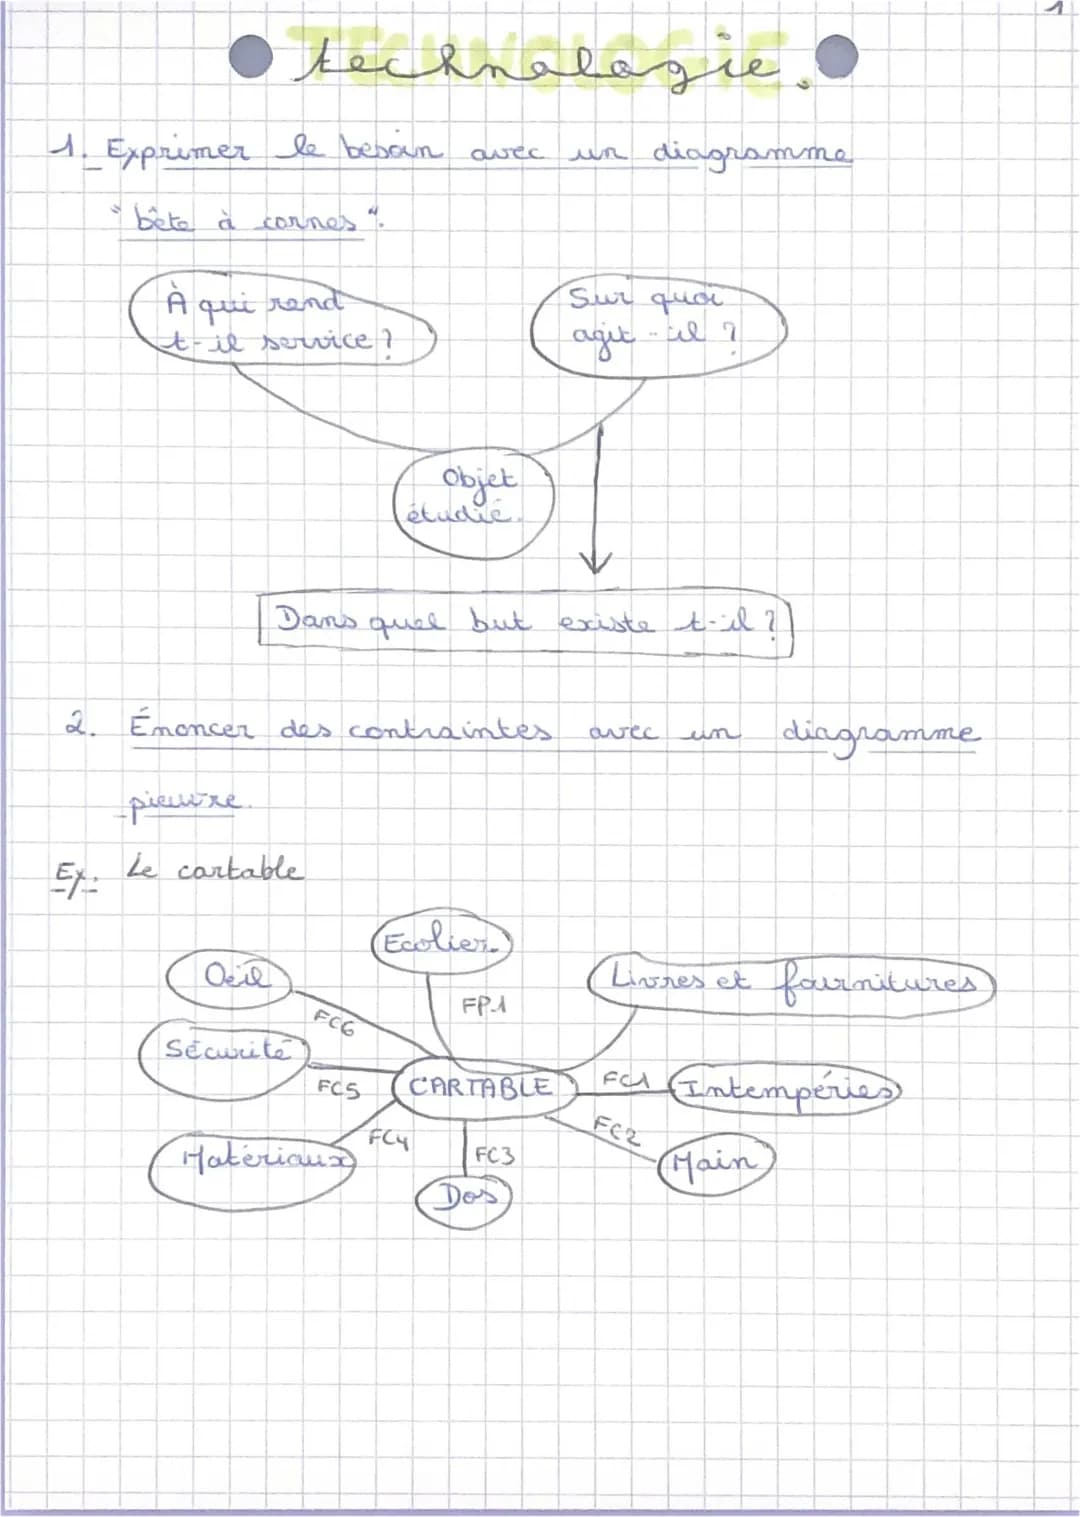 1
TECHNOLOGIE
technologie.
1. Exprimer le besoin avec un diagramme
"bête à cornes".
À qui rend
t-il service ?
Sur quoi
agit-il ?
Objet
étudié.
Dans quel but existe t-il ?
2. Énoncer des contraintes avec un diagramme
pieuvre.
Ex. Le cartable
Ecolier
Oeil
Livres et fournitures
FP1
FC6
Sécurité
FC5
CARTABLE
FC1
Intempéries
FC4
FC2
Matériaux
FC3
Main
Dos